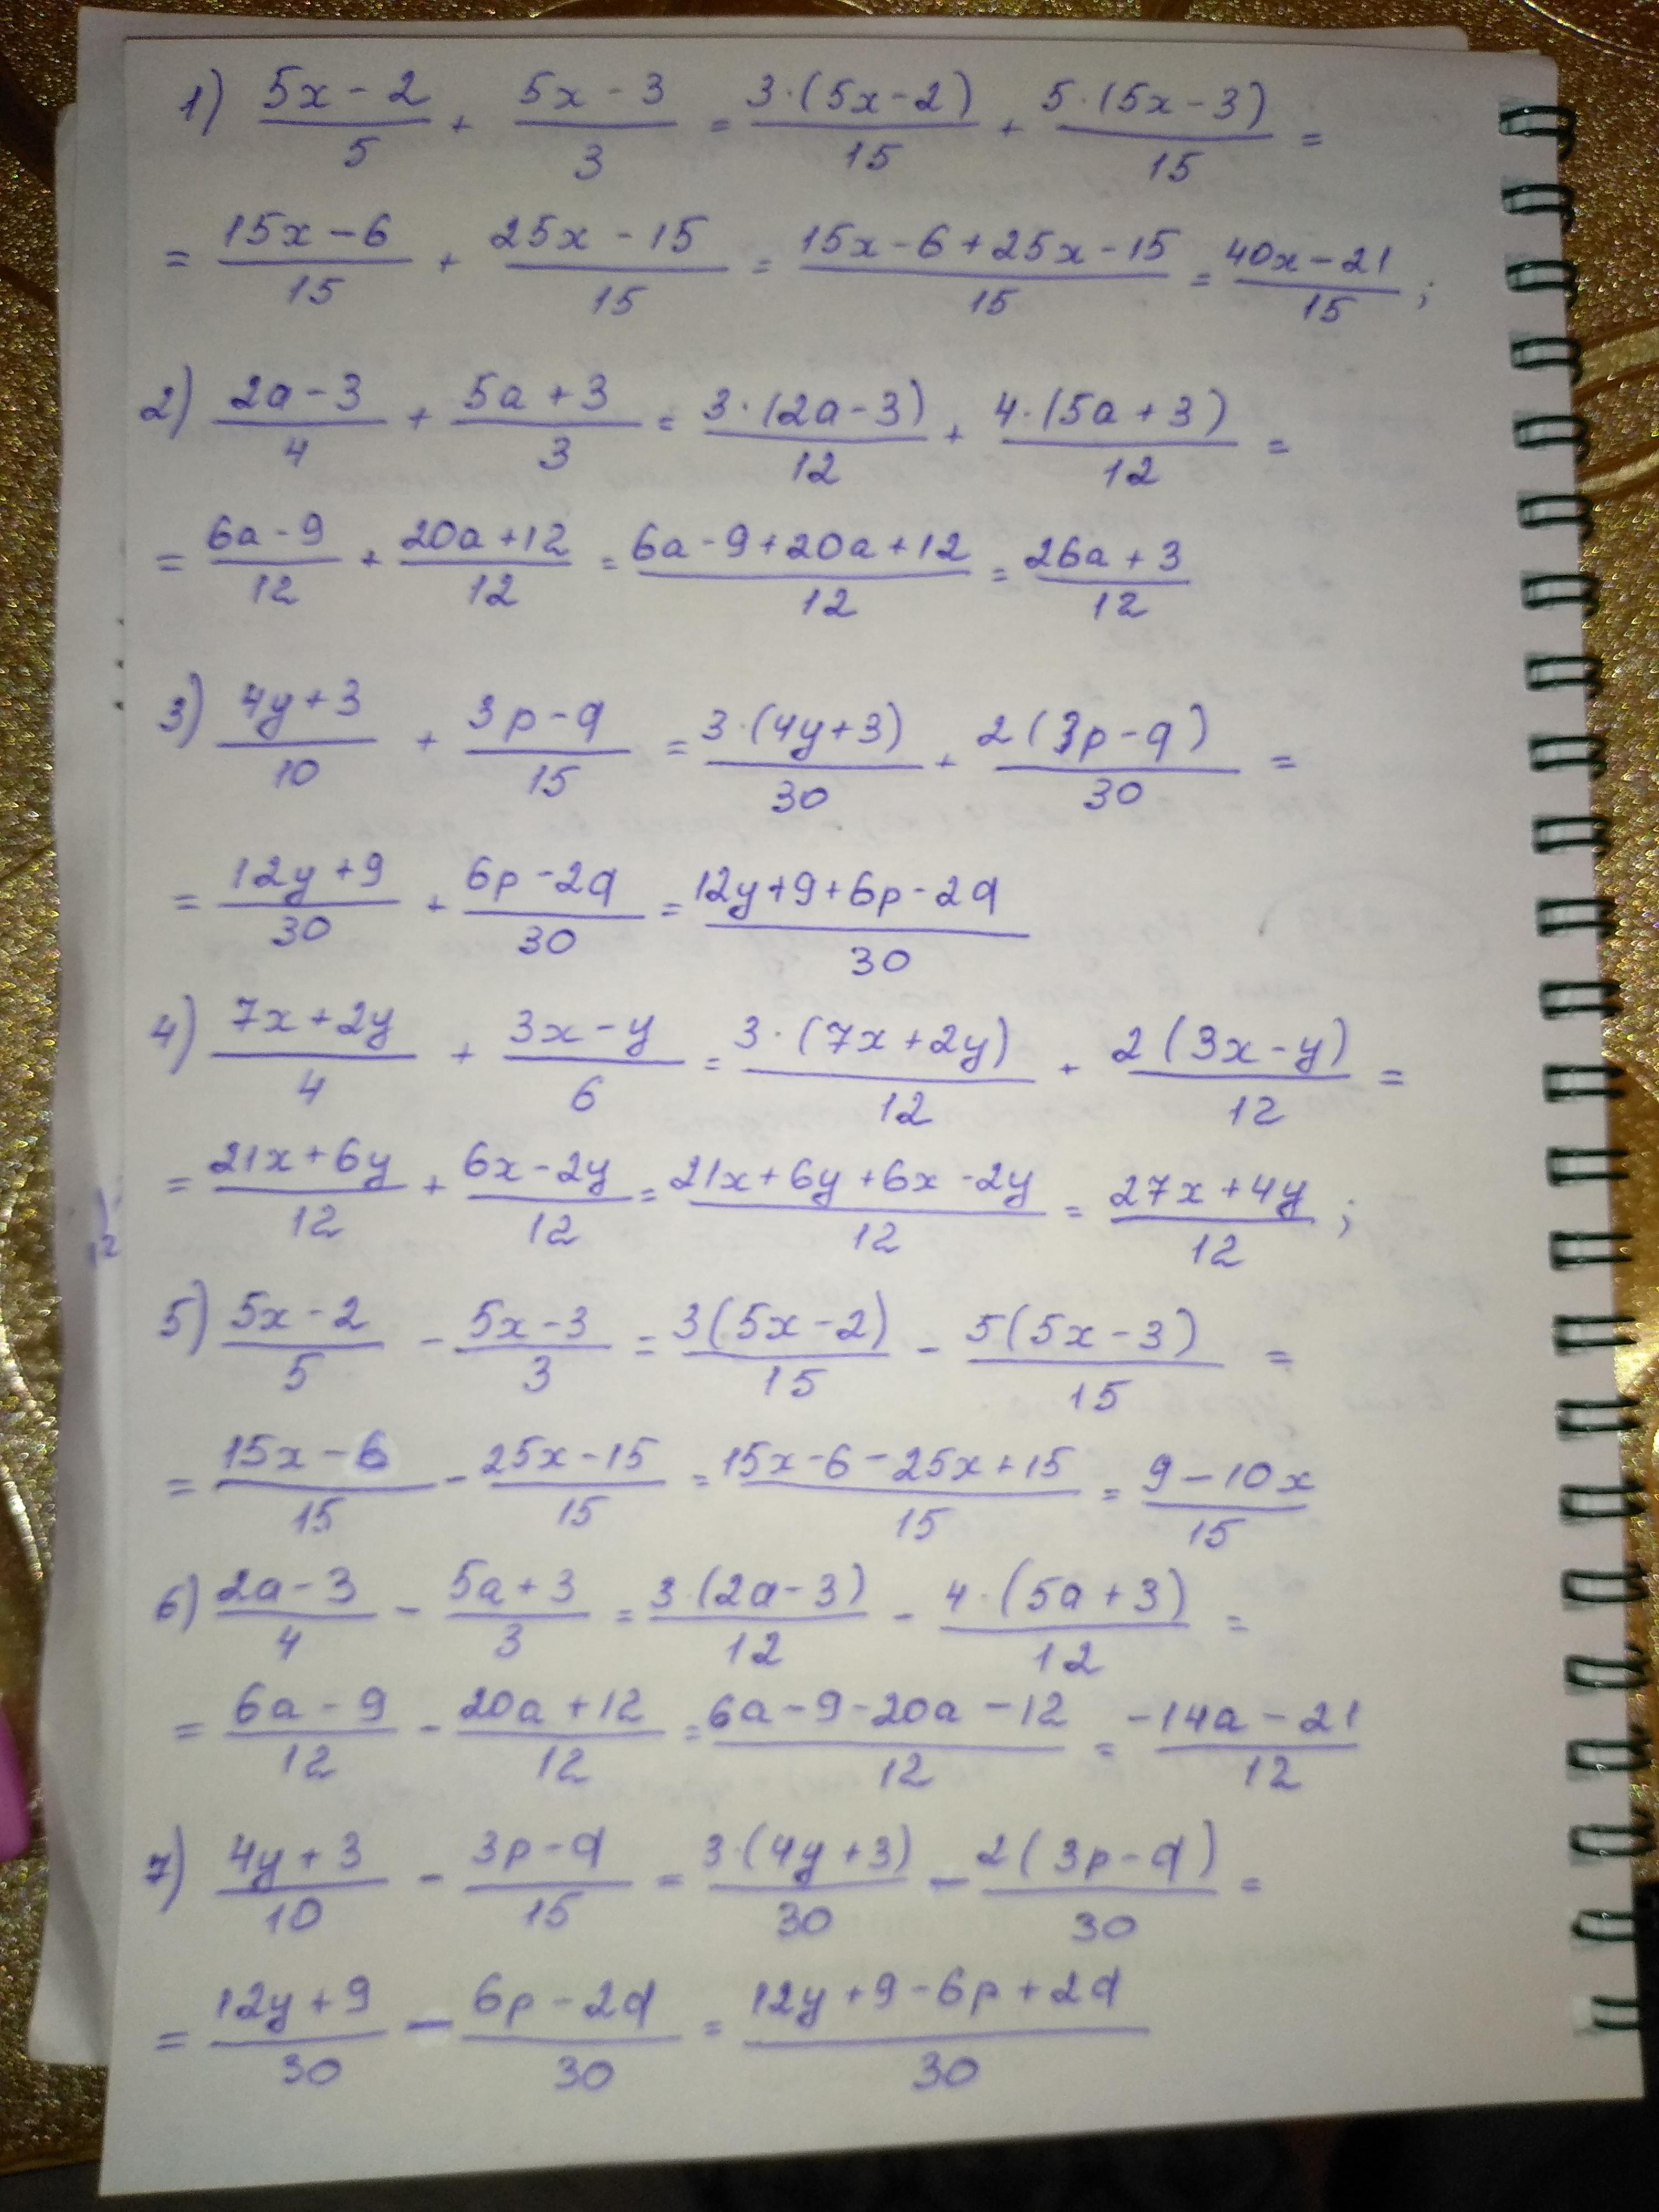 1) (5x-2)/5 + (5x-3)/3 = 3·(5x-2)/15 + 5·(5x-3)/15 =
= (15x-6)/15 + (25x-15)/15 = (15x-6+25x-15)/15 = (40x-21)/15 ;
2) (2a-3)/4 + (5a+3)/3 = 3·(2a-3)/12 + 4·(5a+3)/12 =
= (6a-9)/12 + (20a+12)/12 = (6a-9+20a+12)/12 = (26a+3)/12
3) (4y+3)/10 + (3p-q)/15 = 3·(4y+3)/30 + 2(3p-q)/30 =
= (12y+9)/30 + (6p-2q)/30 = (12y+9+6p-2q)/30
4) (7x+2y)/4 + (3x-y)/6 = 3·(7x+2y)/12 + 2(3x-y)/12 =
= (21x+6y)/12 + (6x-2y)/12 = (21x+6y+6x-2y)/12 = (27x+4y)/12 ;
5) (5x-2)/5 - (5x-3)/3 = 3(5x-2)/15 - 5(5x-3)/15 =
= (15x-6)/15 - (25x-15)/15 = (15x-6-25x+15)/15 = (9-10x)/15
6) (2a-3)/4 - (5a+3)/3 = 3·(2a-3)/12 - 4·(5a+3)/12 =
= (6a-9)/12 - (20a+12)/12 = (6a-9-20a-12)/12 = (-14a-21)/12
7) (4y+3)/10 - (3p-q)/15 = 3·(4y+3)/30 - 2(3p-q)/30 =
= (12y+9)/30 - (6p-2q)/30 = (12y+9-6p+2q)/30